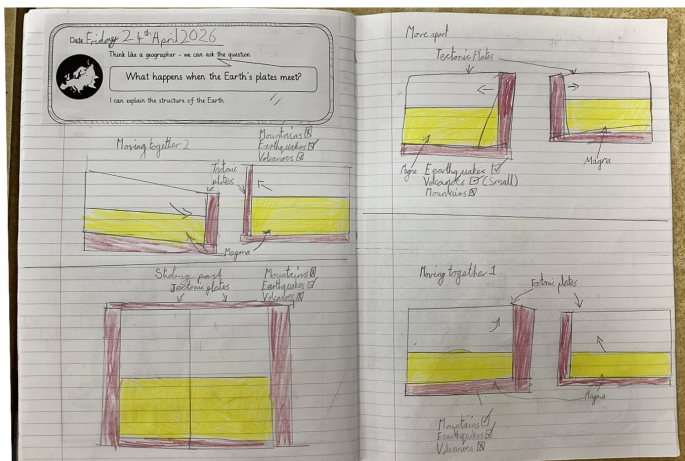 Date Friday 24th April 2026
Think like a geographer - we can ask the question
What happens when the Earth's plates meet?
I can explain the structure of the Earth.
Moving together 2
Mountains
Earthquakes
Volcanoes
Tectonic
plates
Magma
Sliding past
Tectonic plates
Mountains
Earthquakes
Volcanoes
Move apart
Tectonic Plates
Magma
Magma
Eearthquakes
Volcanoes (Small)
Mountains
Moving together 1
Tectonic plates
Magma
Mountains
Eearthquakes
Volcanoes